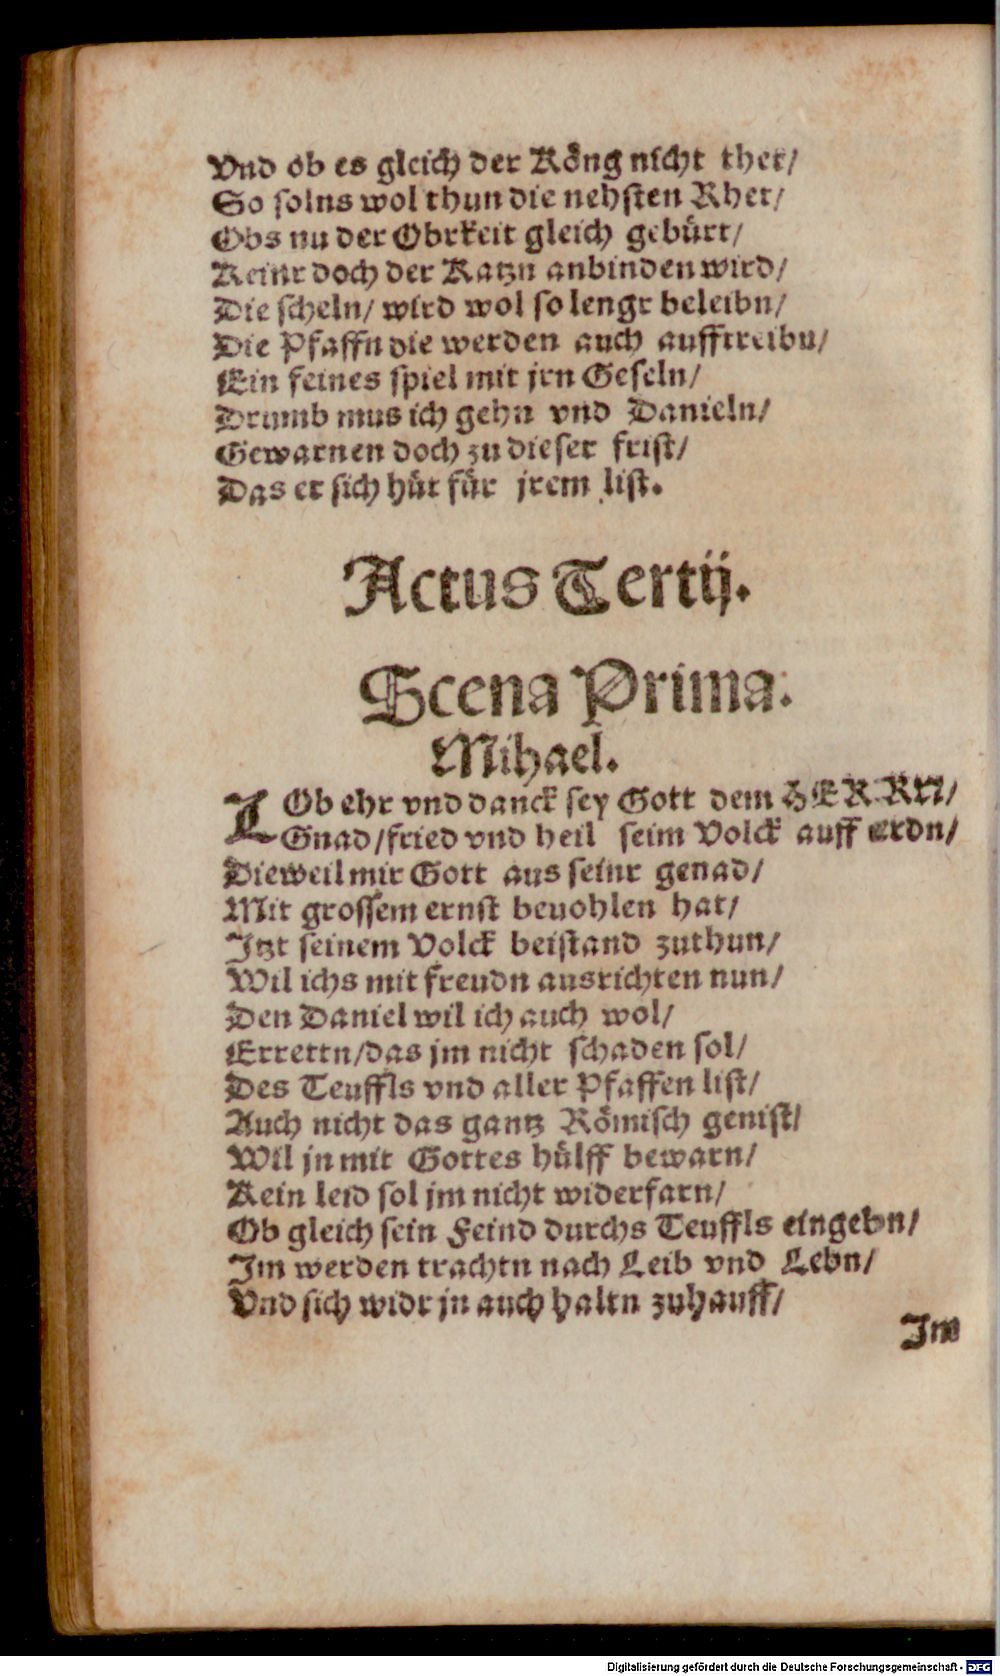 Vnd ob es gleich der Köng nicht thet/
So solns wol thun die nehsten Rhet/
Obs nu der Obrkeit gleich gebürt/
Keinr doch der Katzn anbinden wird/
Die scheln/ wird wol so lengr beleibn/
Die Pfaffn die werden auch aufftreibn/
Ein feines spiel mit jrn Geseln/
Drumb mus ich gehn vnd Danieln/
Gewarnen doch zu dieser frist/
Das er sich hüt für jrem list.
Actus Tertij.
Scena Prima.
Mihael.
LOb ehr vnd danck sey Gott dem HERRN/
Gnad/fried vnd heil seim Volck auff erdn/
Dieweil mir Gott aus seinr genad/
Mit grossem ernst beuohlen hat/
Itzt seinem Volck beistand zuthun/
Wil ichs mit freudn ausrichten nun/
Den Daniel wil ich auch wol/
Errettn/das jm nicht schaden sol/
Des Teuffls vnd aller Pfaffen list/
Auch nicht das gantz Römisch genist/
Wil jn mit Gottes hülff bewarn/
Kein leid sol jm nicht widerfarn/
Ob gleich sein Feind durchs Teuffls eingebn/
Im werden trachtn nach Leib vnd Lebn/
Vnd sich widr jn auch haltn zuhauff/
Im
Digitalisierung gefördert durch die Deutsche Forschungsgemeinschaft - DFG